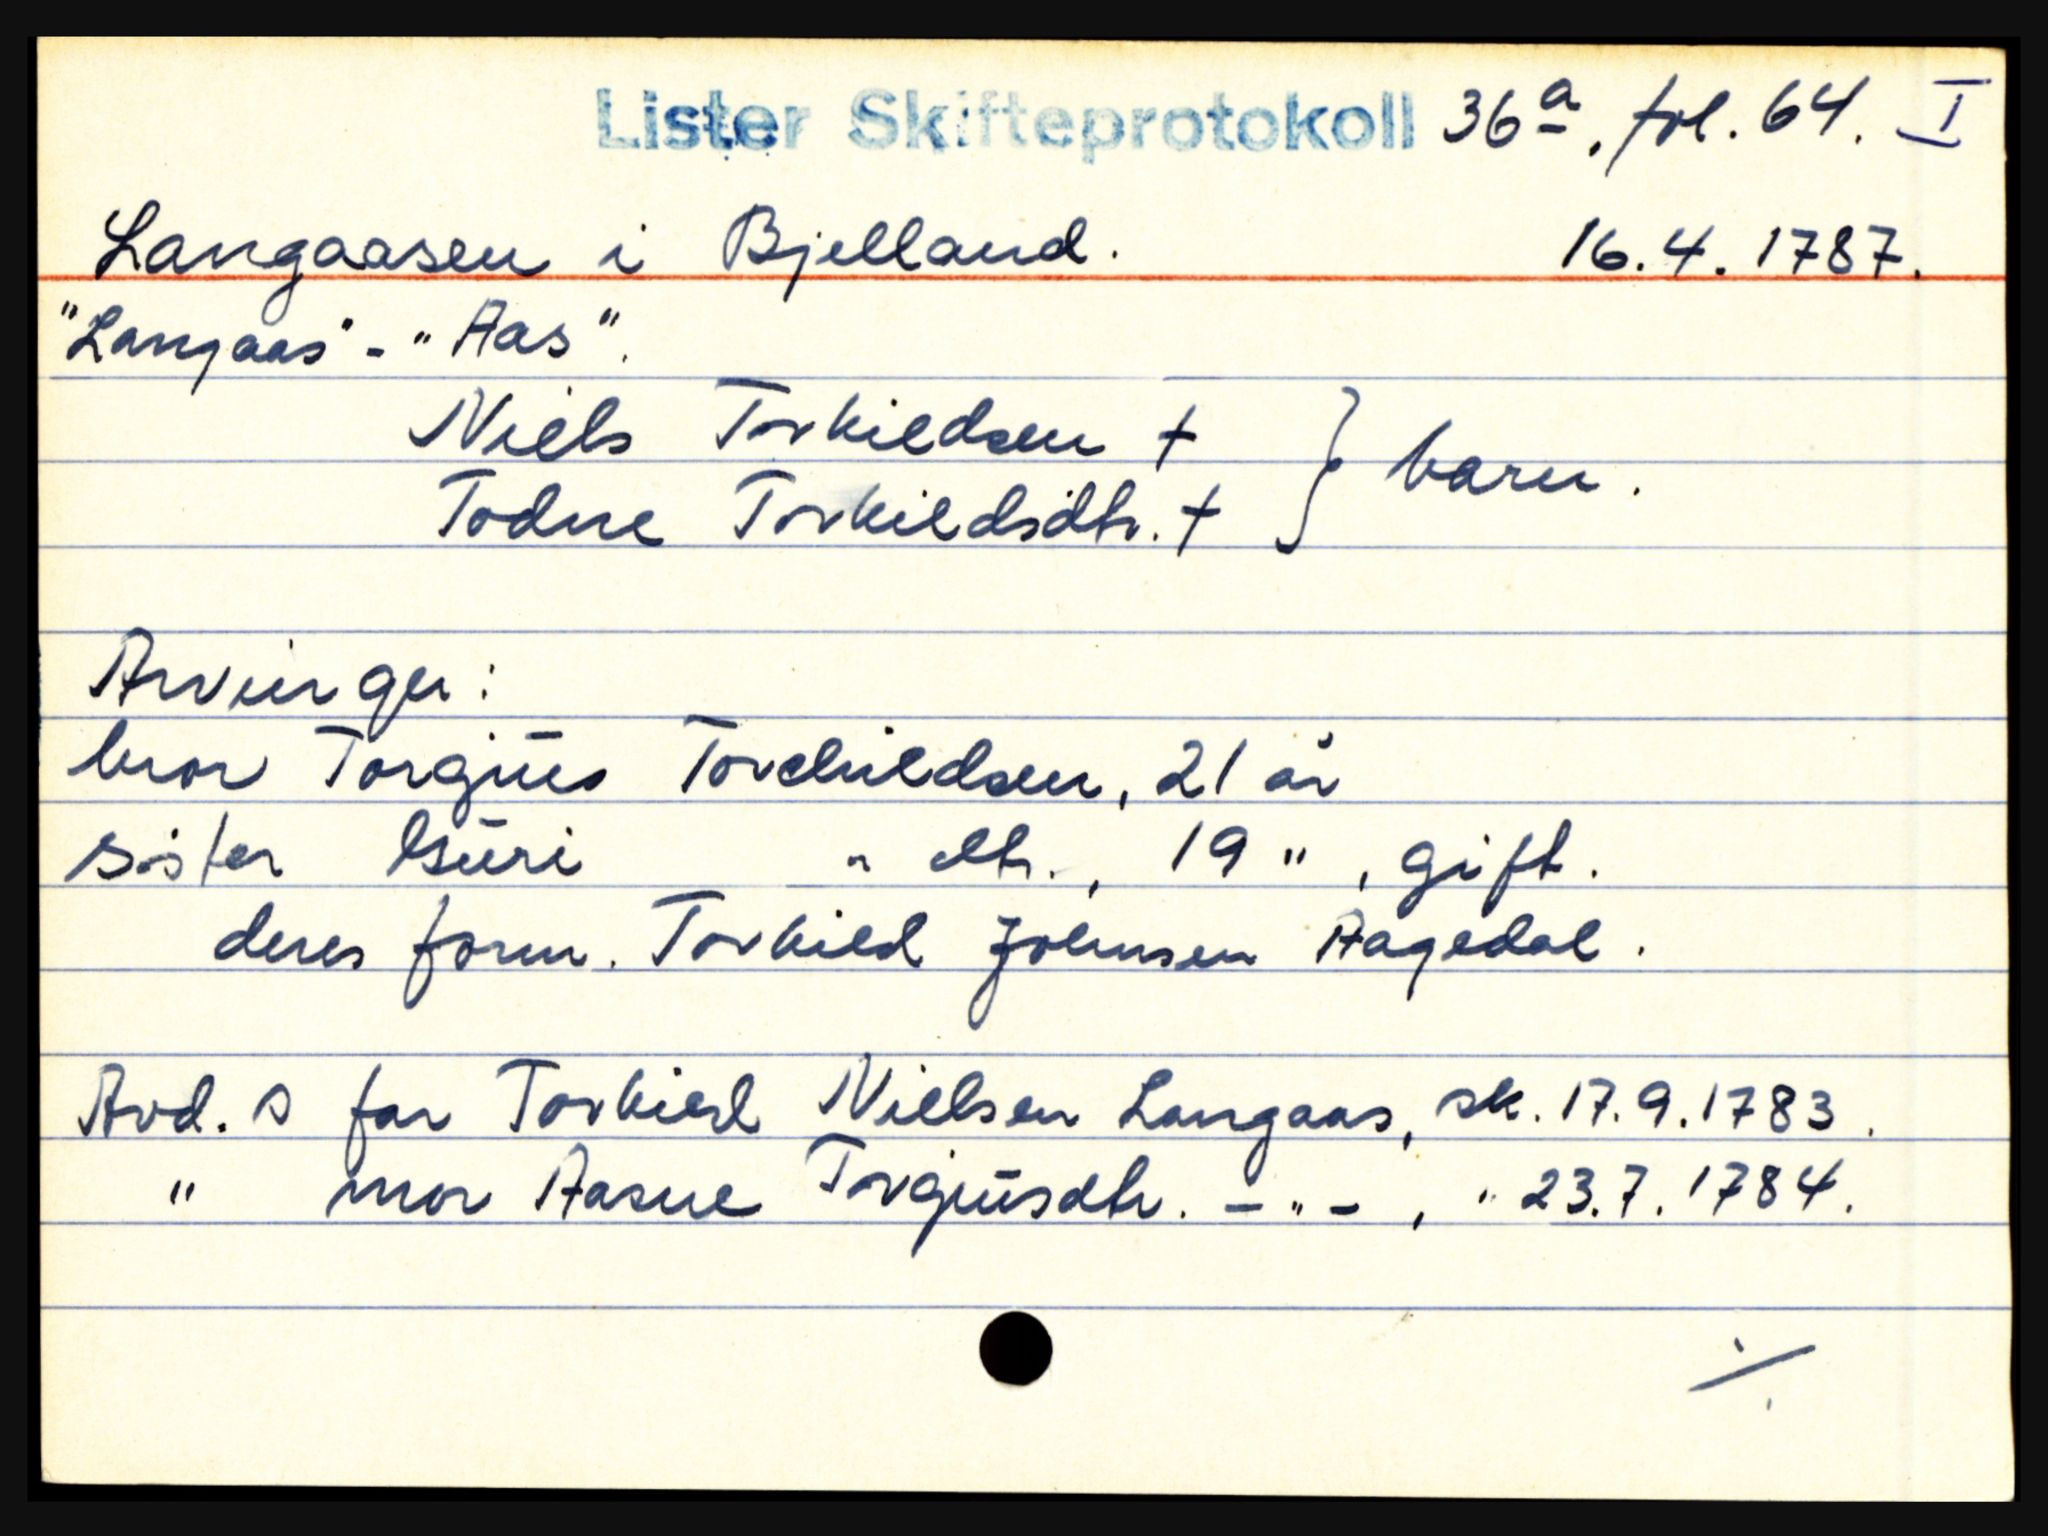 Lister Skifteprotokoll 36a, fol. 64. I
Langaasen i Bjelland. 16.4.1787.
"Langaas" - "Aas".
Niels Torkildsen † } barn.
Todne Torkildsdtr. †
Arvinger:
bror Torgius Torchildsen, 21 år
søster Guri " dtr., 19 ", gift.
deres form. Torkild Johnsen Aagedal.
Avd. s far Torkield Nielsen Langaas, sk. 17.9.1783.
" mor Aasne Torgiusdtr. - " - , " 23.7.1784.
./.